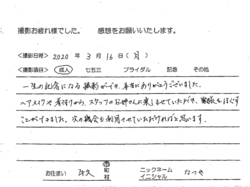 撮影お疲れ様でした。 感想をお願いいたします。
<撮影日時> 2020 年 3 月 16 日 (月)
<撮影項目> 成人 七五三 ブライダル 記念 その他
一生の記念になる撮影ができ、本当にありがとうございました。
ヘアメイクや着付けから、スタッフのお姉さんが楽しませていただき、緊張をほぐす
ことができました。次の機会も利用させていただければと思います。
お住まい 町 村 ニックネーム イニシャル なつき